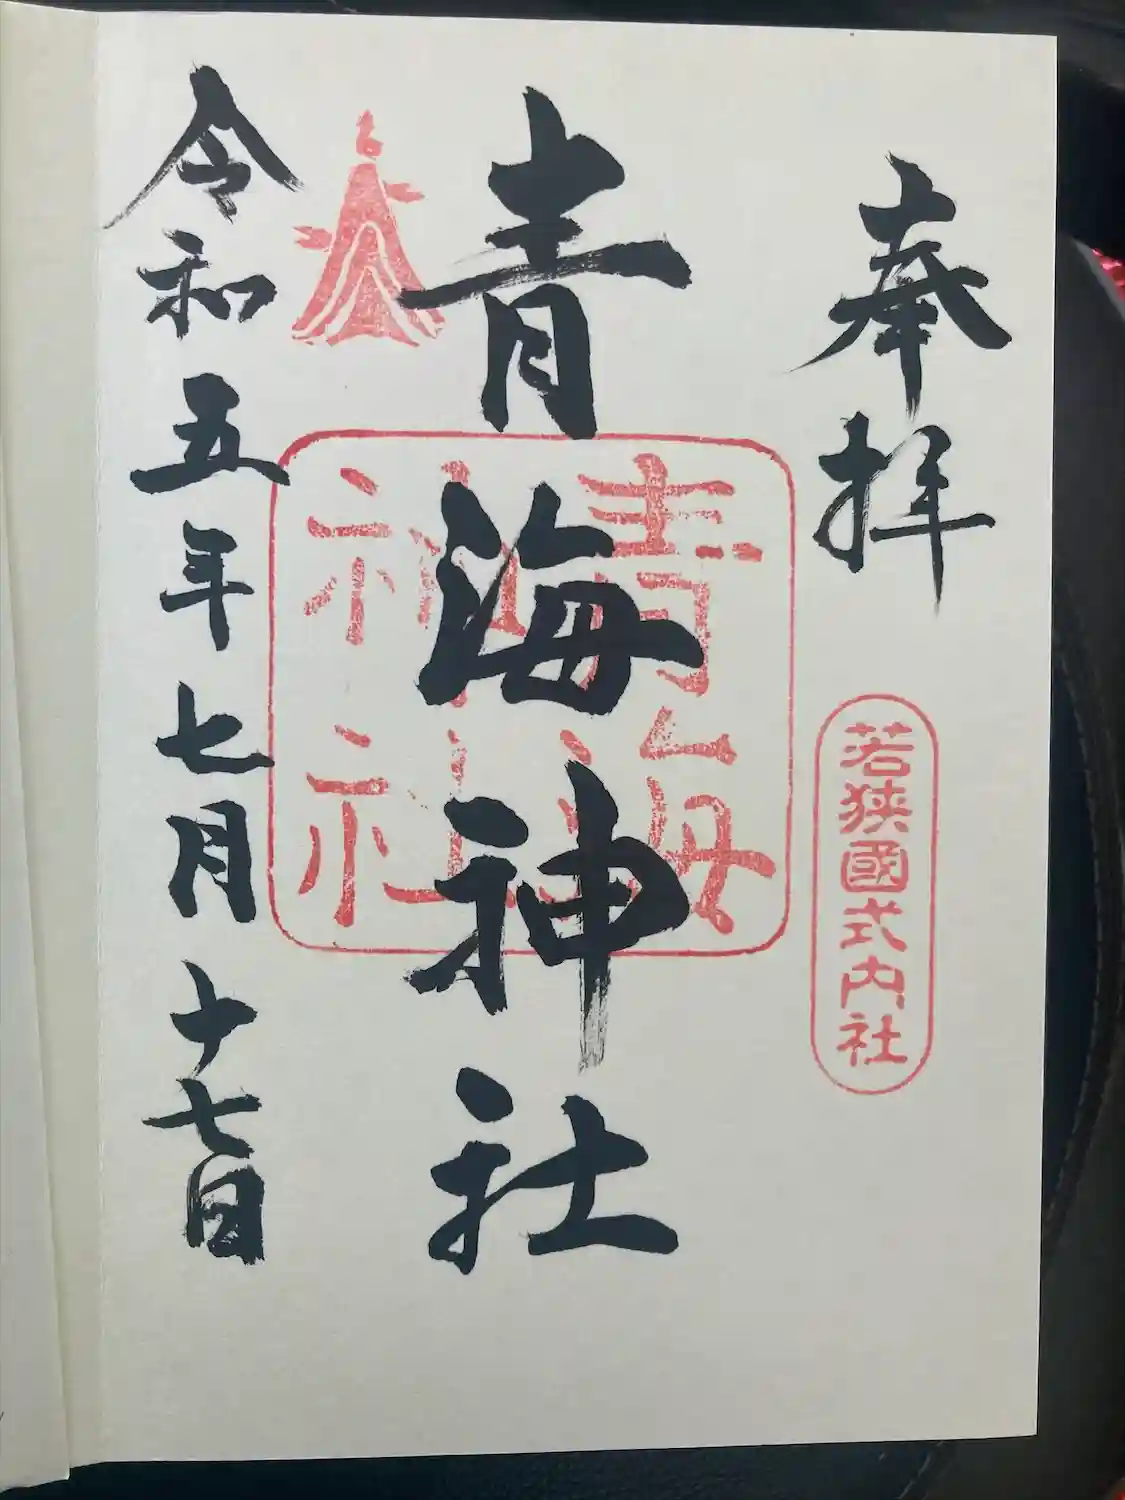 奉拝
若狭國式内社
青海神社
青海
神社
令和五年七月十七日